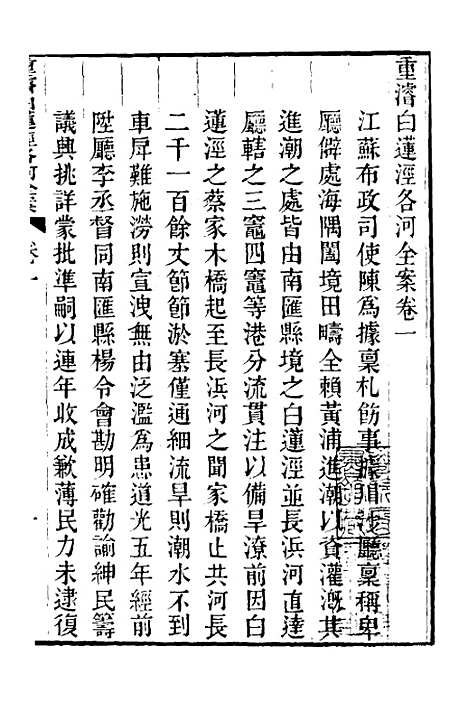 重濬白蓮涇各河全案卷一
江蘇布政司使陳為據稟札飭事據川沙廳稟稱卑
廳僻處海隅闔境田疇全賴黃浦進潮以資灌漑其
進潮之處皆由南匯縣境之白蓮涇並長浜河直達
廳轄之三竈四竈等港分流貫注以備旱潦前因白
蓮涇之蔡家木橋起至長浜河之聞家橋止共河長
二千一百餘丈節節淤塞僅通細流旱則潮水不到
車戽難施澇則宣洩無由泛濫為患道光五年經前
陞廳李丞督同南匯縣楊令會勘明確勸諭紳民籌
議興挑詳蒙批準嗣以連年收成歉薄民力未逮復
卷一
一